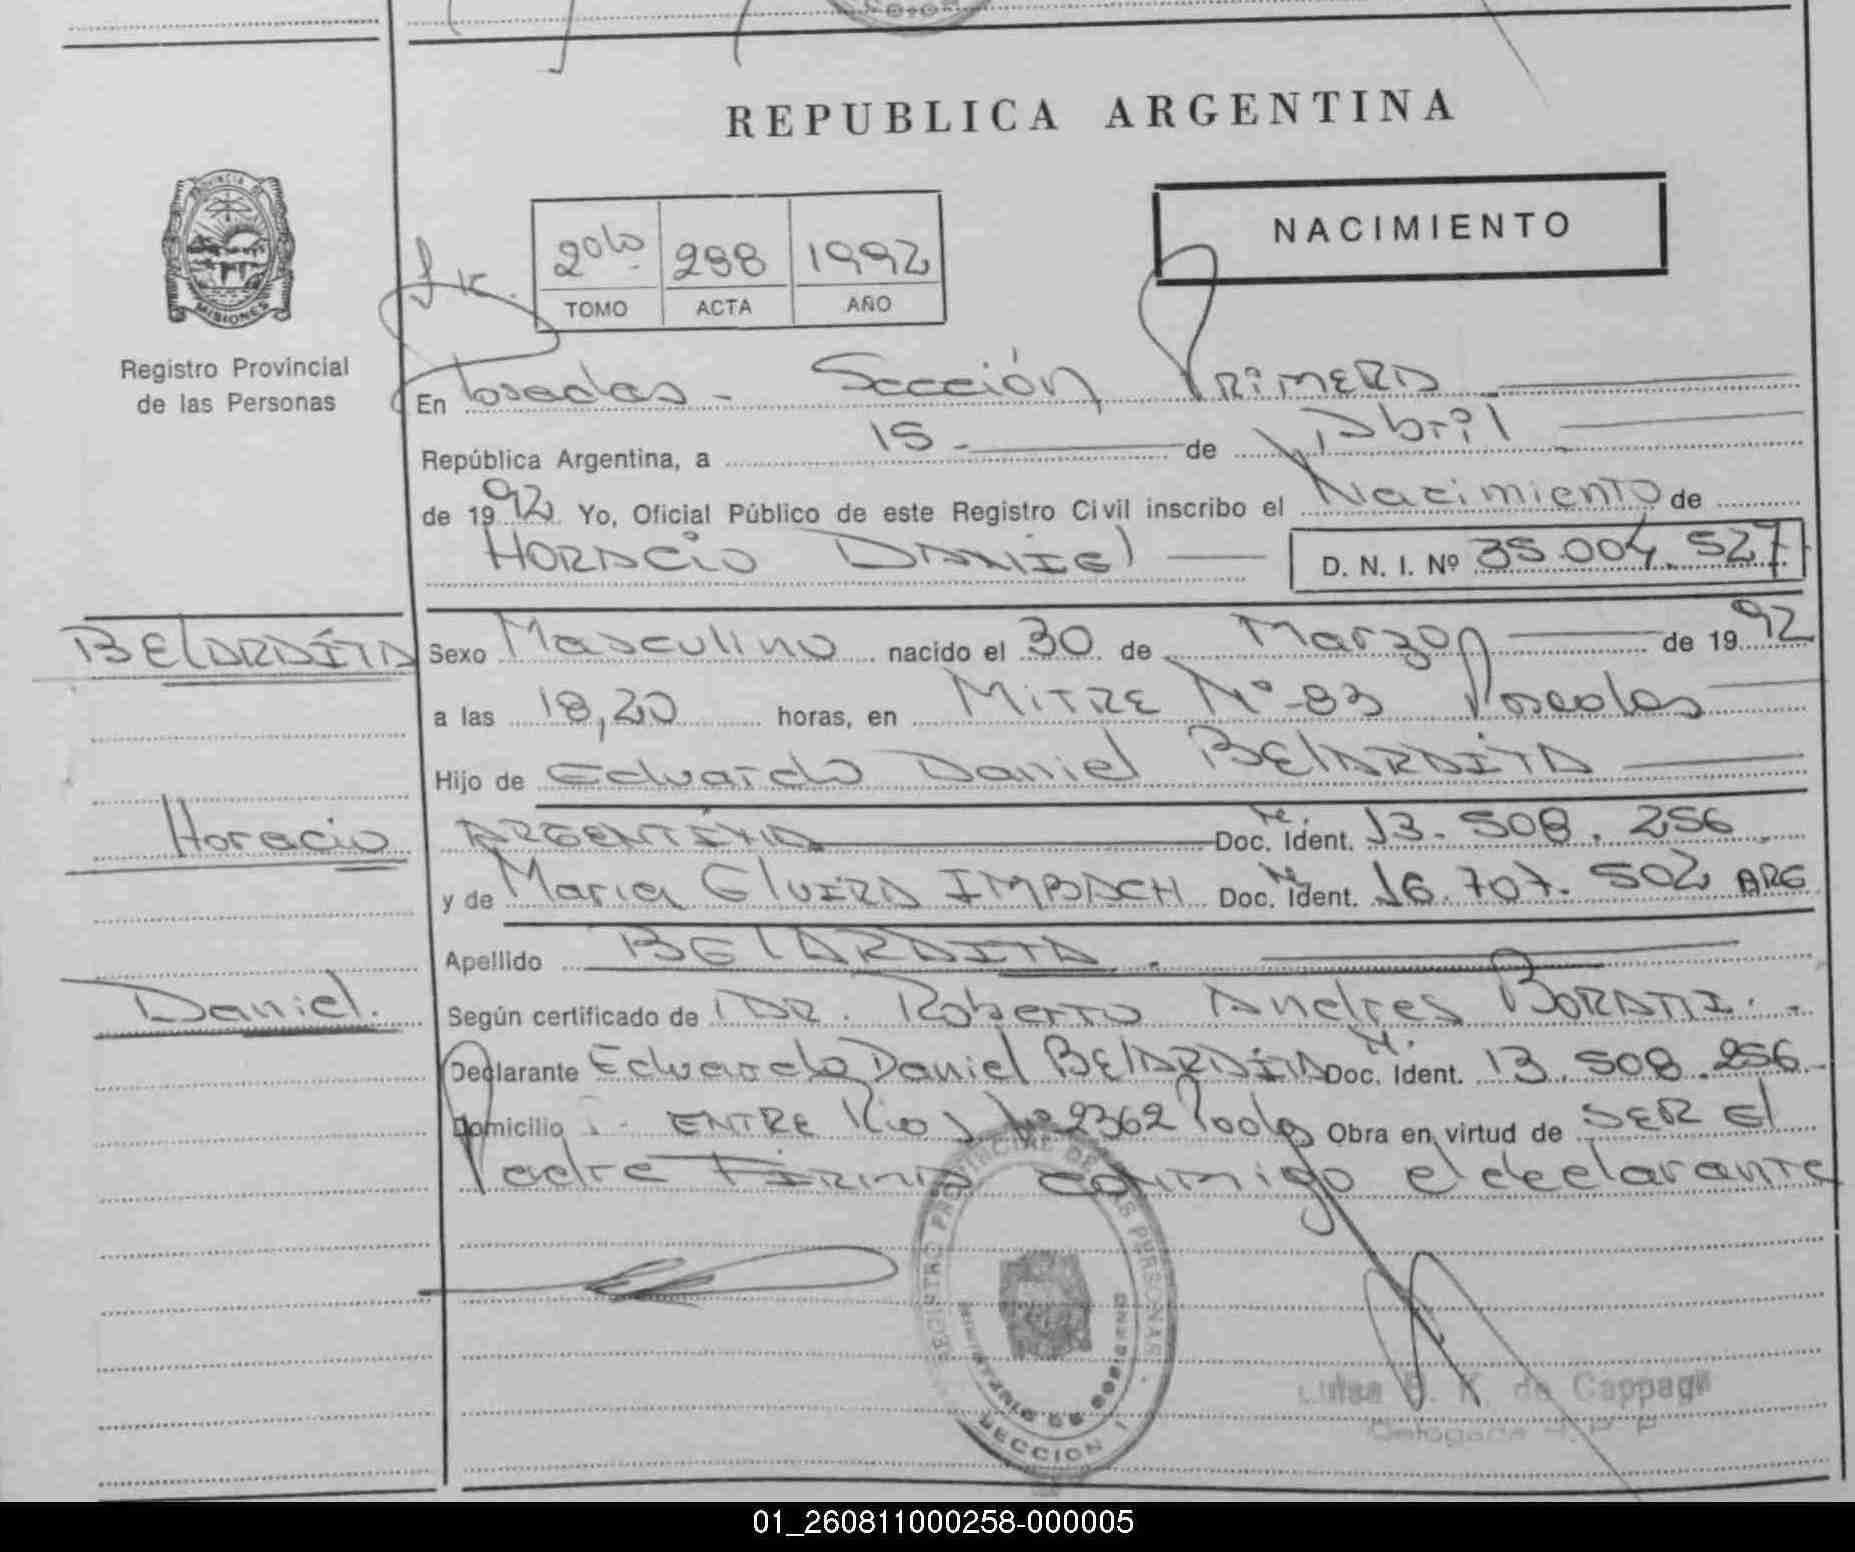 REPUBLICA ARGENTINA
NACIMIENTO
PROVINCIA DE MISIONES
Registro Provincial
de las Personas
2do 298 1992
TOMO ACTA AÑO
En Posadas - Sección PRIMERA
República Argentina, a 15 - de Abril
de 1992 Yo, Oficial Público de este Registro Civil inscribo el Nacimiento de
HORACIO DANIEL D. N. I. Nº 35.004.527
BELARDITA
Sexo Masculino nacido el 30 de Marzo de 1992
a las 18,20 horas, en MITRE Nº 83 Posadas
Hijo de Eduardo Daniel BELARDITA
Horacio
ARGENTINA Doc. Ident. 13.508.256
y de Maria ELVIRA IMBACH Doc. Ident. 16.707.502 ARG
Apellido BELARDITA.
Daniel.
Según certificado de DR. Roberto Andres
Declarante Eduardo Daniel BELARDITA Doc. Ident. 13.508.256
Domicilio ENTRE Rios Nº 2362 Pdas Obra en virtud de SER El
Padre FIRMA conmigo el declarante
REGISTRO PROVINCIAL DE LAS PERSONAS
MINISTERIO DE GOBIERNO
SECCION 1
Luisa K. de
01_260811000258-000005